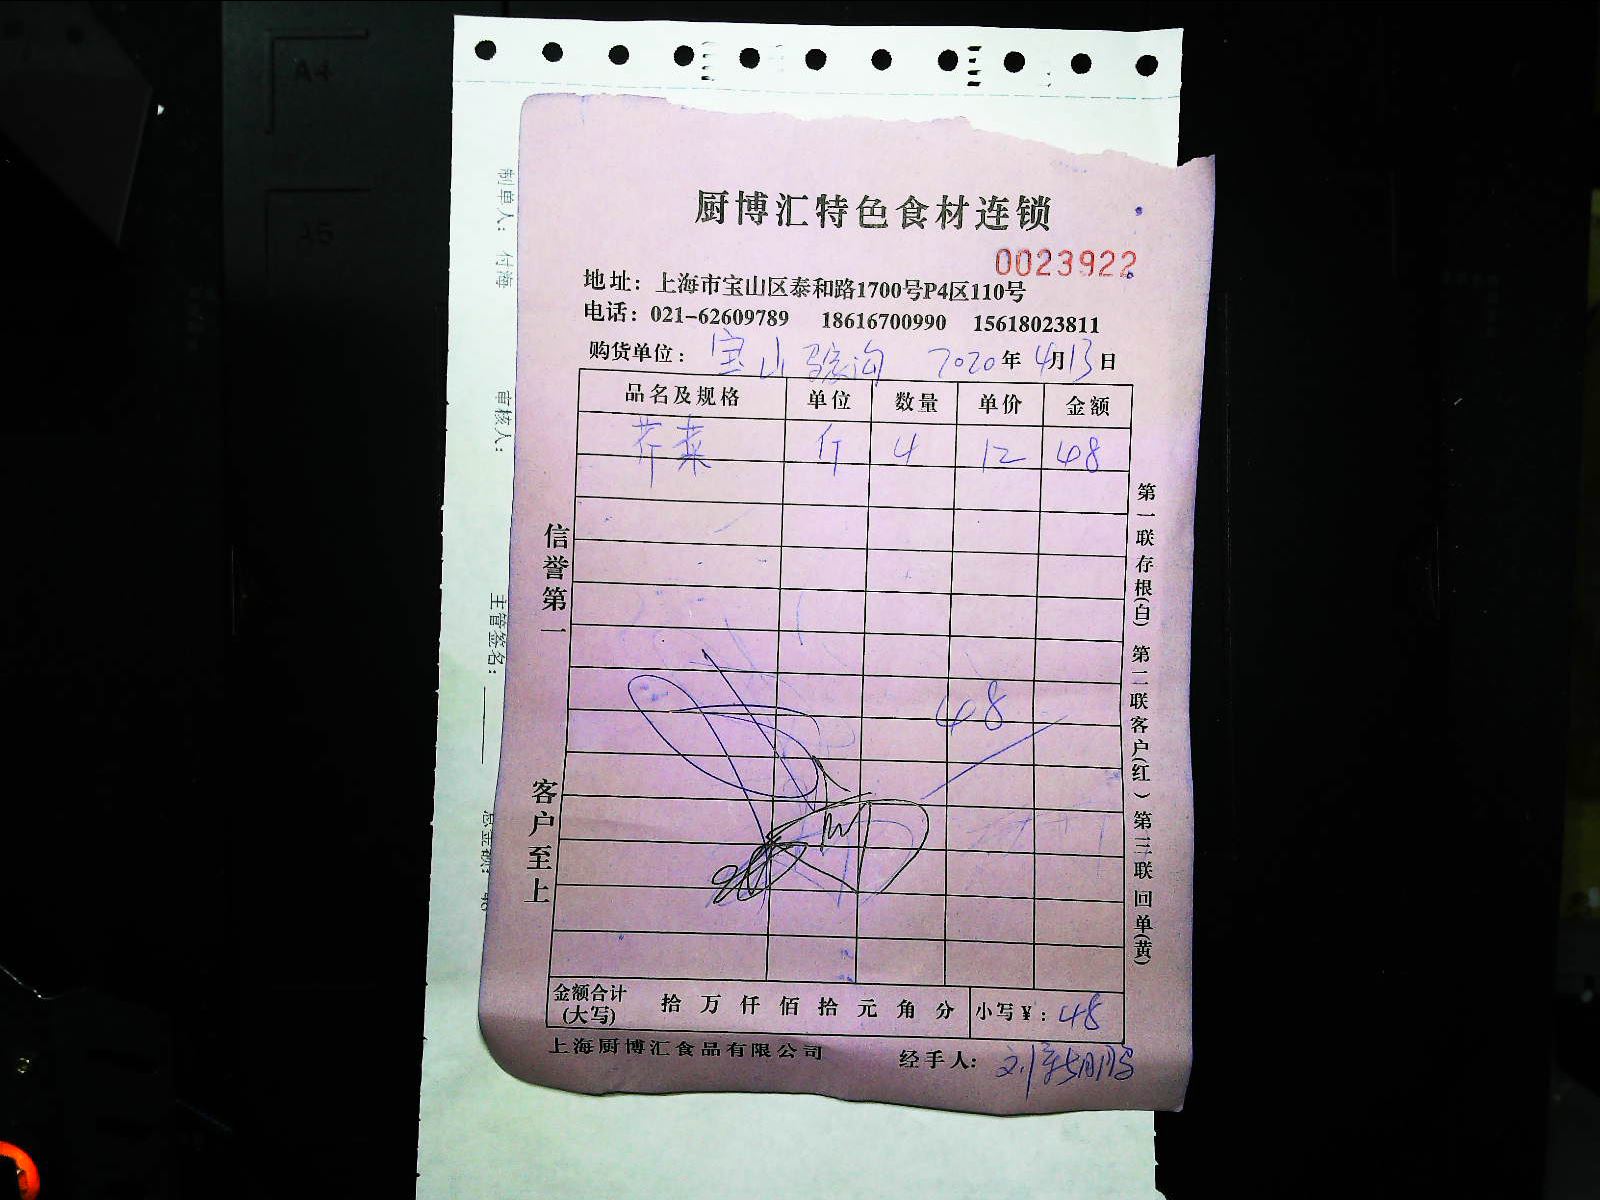 厨博汇特色食材连锁
0023922
地址：上海市宝山区泰和路1700号P4区110号
电话：021-62609789 18616700990 15618023811
购货单位：宝山 2020年4月13日
品名及规格 单位 数量 单价 金额
芥菜 斤 4 12 48
48
金额合计(大写) 拾 万 仟 佰 拾 元 角 分 小写￥：48
上海厨博汇食品有限公司 经手人：刘
信誉第一
客户至上
第一联存根(白) 第二联客户(红) 第三联回单(黄)
制单人：付海
审核人：
主管签名：
总金额：48
A4
A5